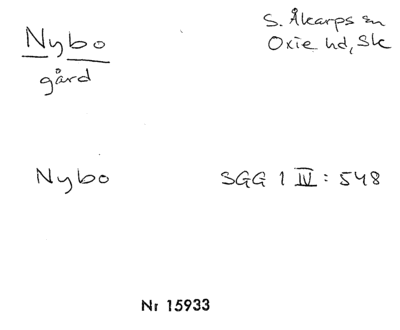 Nybo
gård
S. Åkarps sn
Oxie hd, Sk
Nybo
SGG 1 IV: 548
Nr 15933